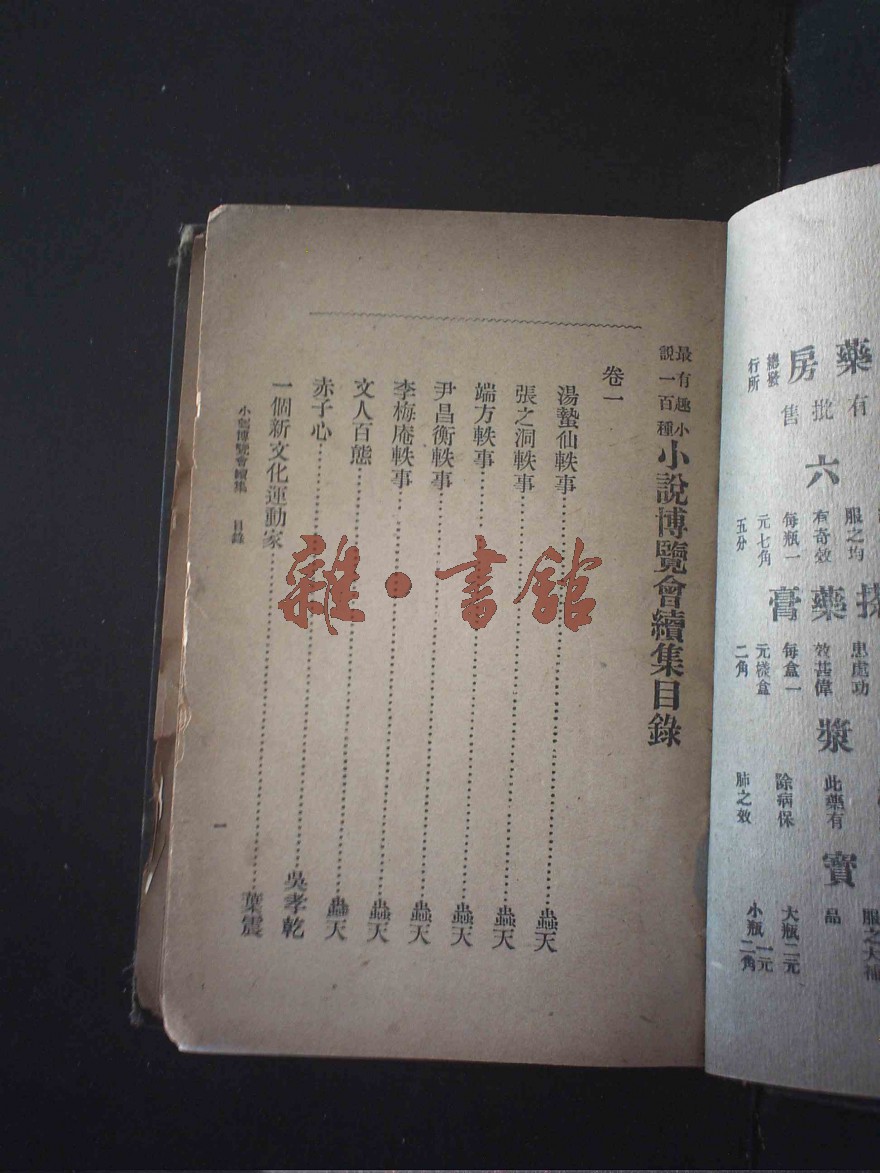 藥房
總發
行所
有批售
六
服之均
有奇效
每瓶一
元七角
五分
藥膏
患處功
效甚偉
每盒一
二角
漿
此藥有
除病保
肺之效
寶
品
服之大補
大瓶二元
小瓶一元二角
最有趣小
說一百種
小說博覽會續集目錄
卷一
湯蟄仙軼事……蟲天
張之洞軼事……蟲天
端方軼事……蟲天
尹昌衡軼事……蟲天
李梅庵軼事……蟲天
文人百態……蟲天
赤子心……吳孝乾
一個新文化運動家……葉震
小說博覽會續集 目錄
一
雜·書館